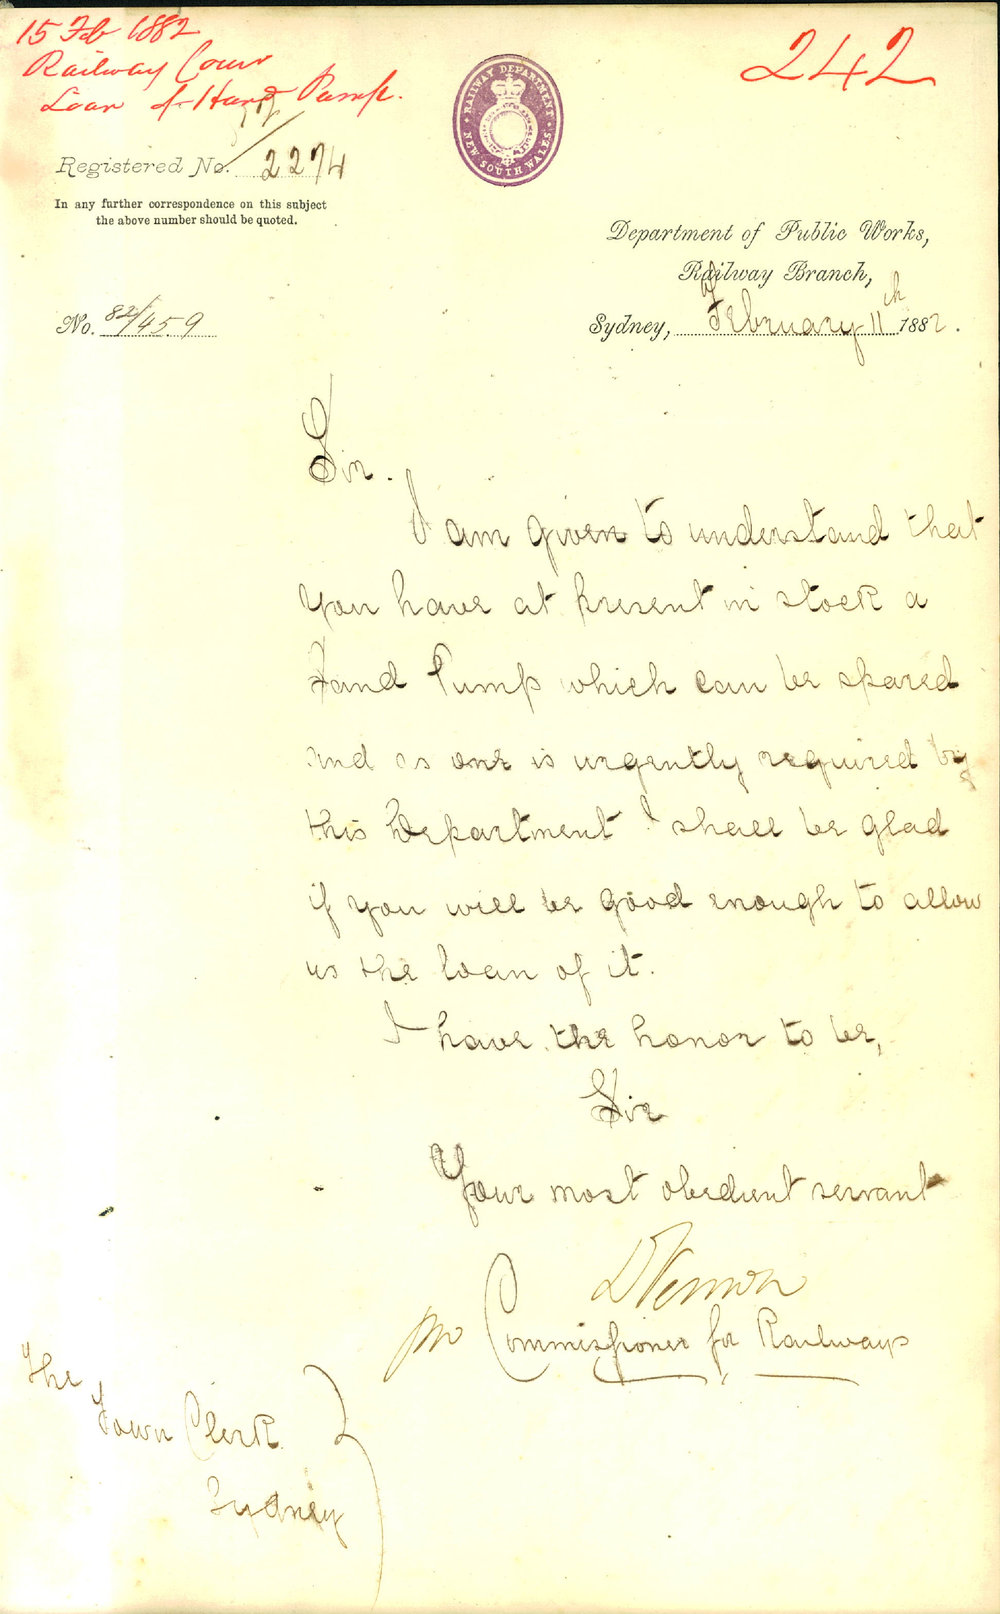 15 Feb 1882
Railway Com
Loan of Hand Pump.
242
RAILWAY DEPARTMENT
NEW SOUTH WALES
Registered No. 2274
In any further correspondence on this subject
the above number should be quoted.
Department of Public Works,
Railway Branch,
No. 82/459
Sydney, February 11th 1882.
Sir.
I am given to understand that
you have at present in stock a
Hand Pump which can be spared
and as one is urgently required by
this Department I shall be glad
if you will be good enough to allow
us the loan of it.
I have the honor to be,
Sir
Your most obedient servant
D Vernon
pro Commissioner for Railways
The
Town Clerk
Sydney